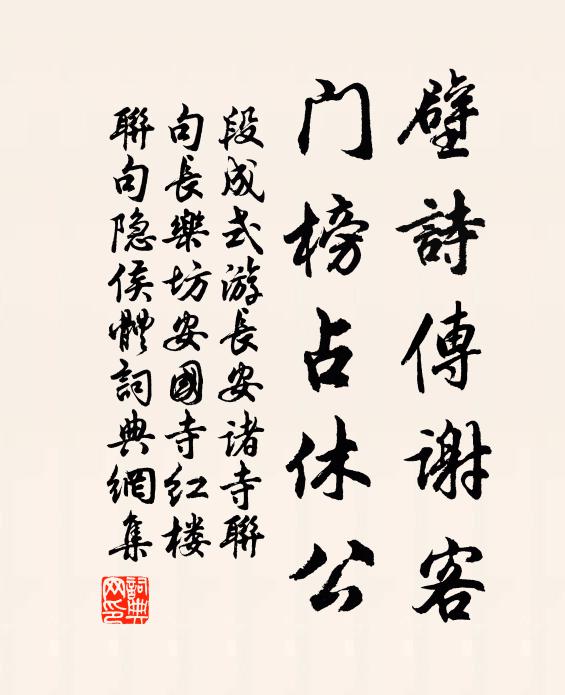 壁詩傳謝客
门榜占休公
段成式游長安諸寺聯
句長樂坊安國寺红楼
聯句隐侯體詞典網集